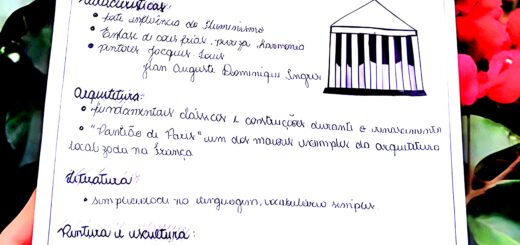 Características:
• forte influência do Iluminismo
• Ênfase de cores frias, pureza, harmonia
• pintores Jacques Louis
Jean Auguste Dominique Ingres
Arquitetura:
• fundamentais clássicos e construções durante o renascimento
• "Pantião de Paris" um dos maiores exemplos da arquitetura
localizada na frança
Literatura:
• simplicidade na linguagem, vocabulário simples
Pintura e escultura: